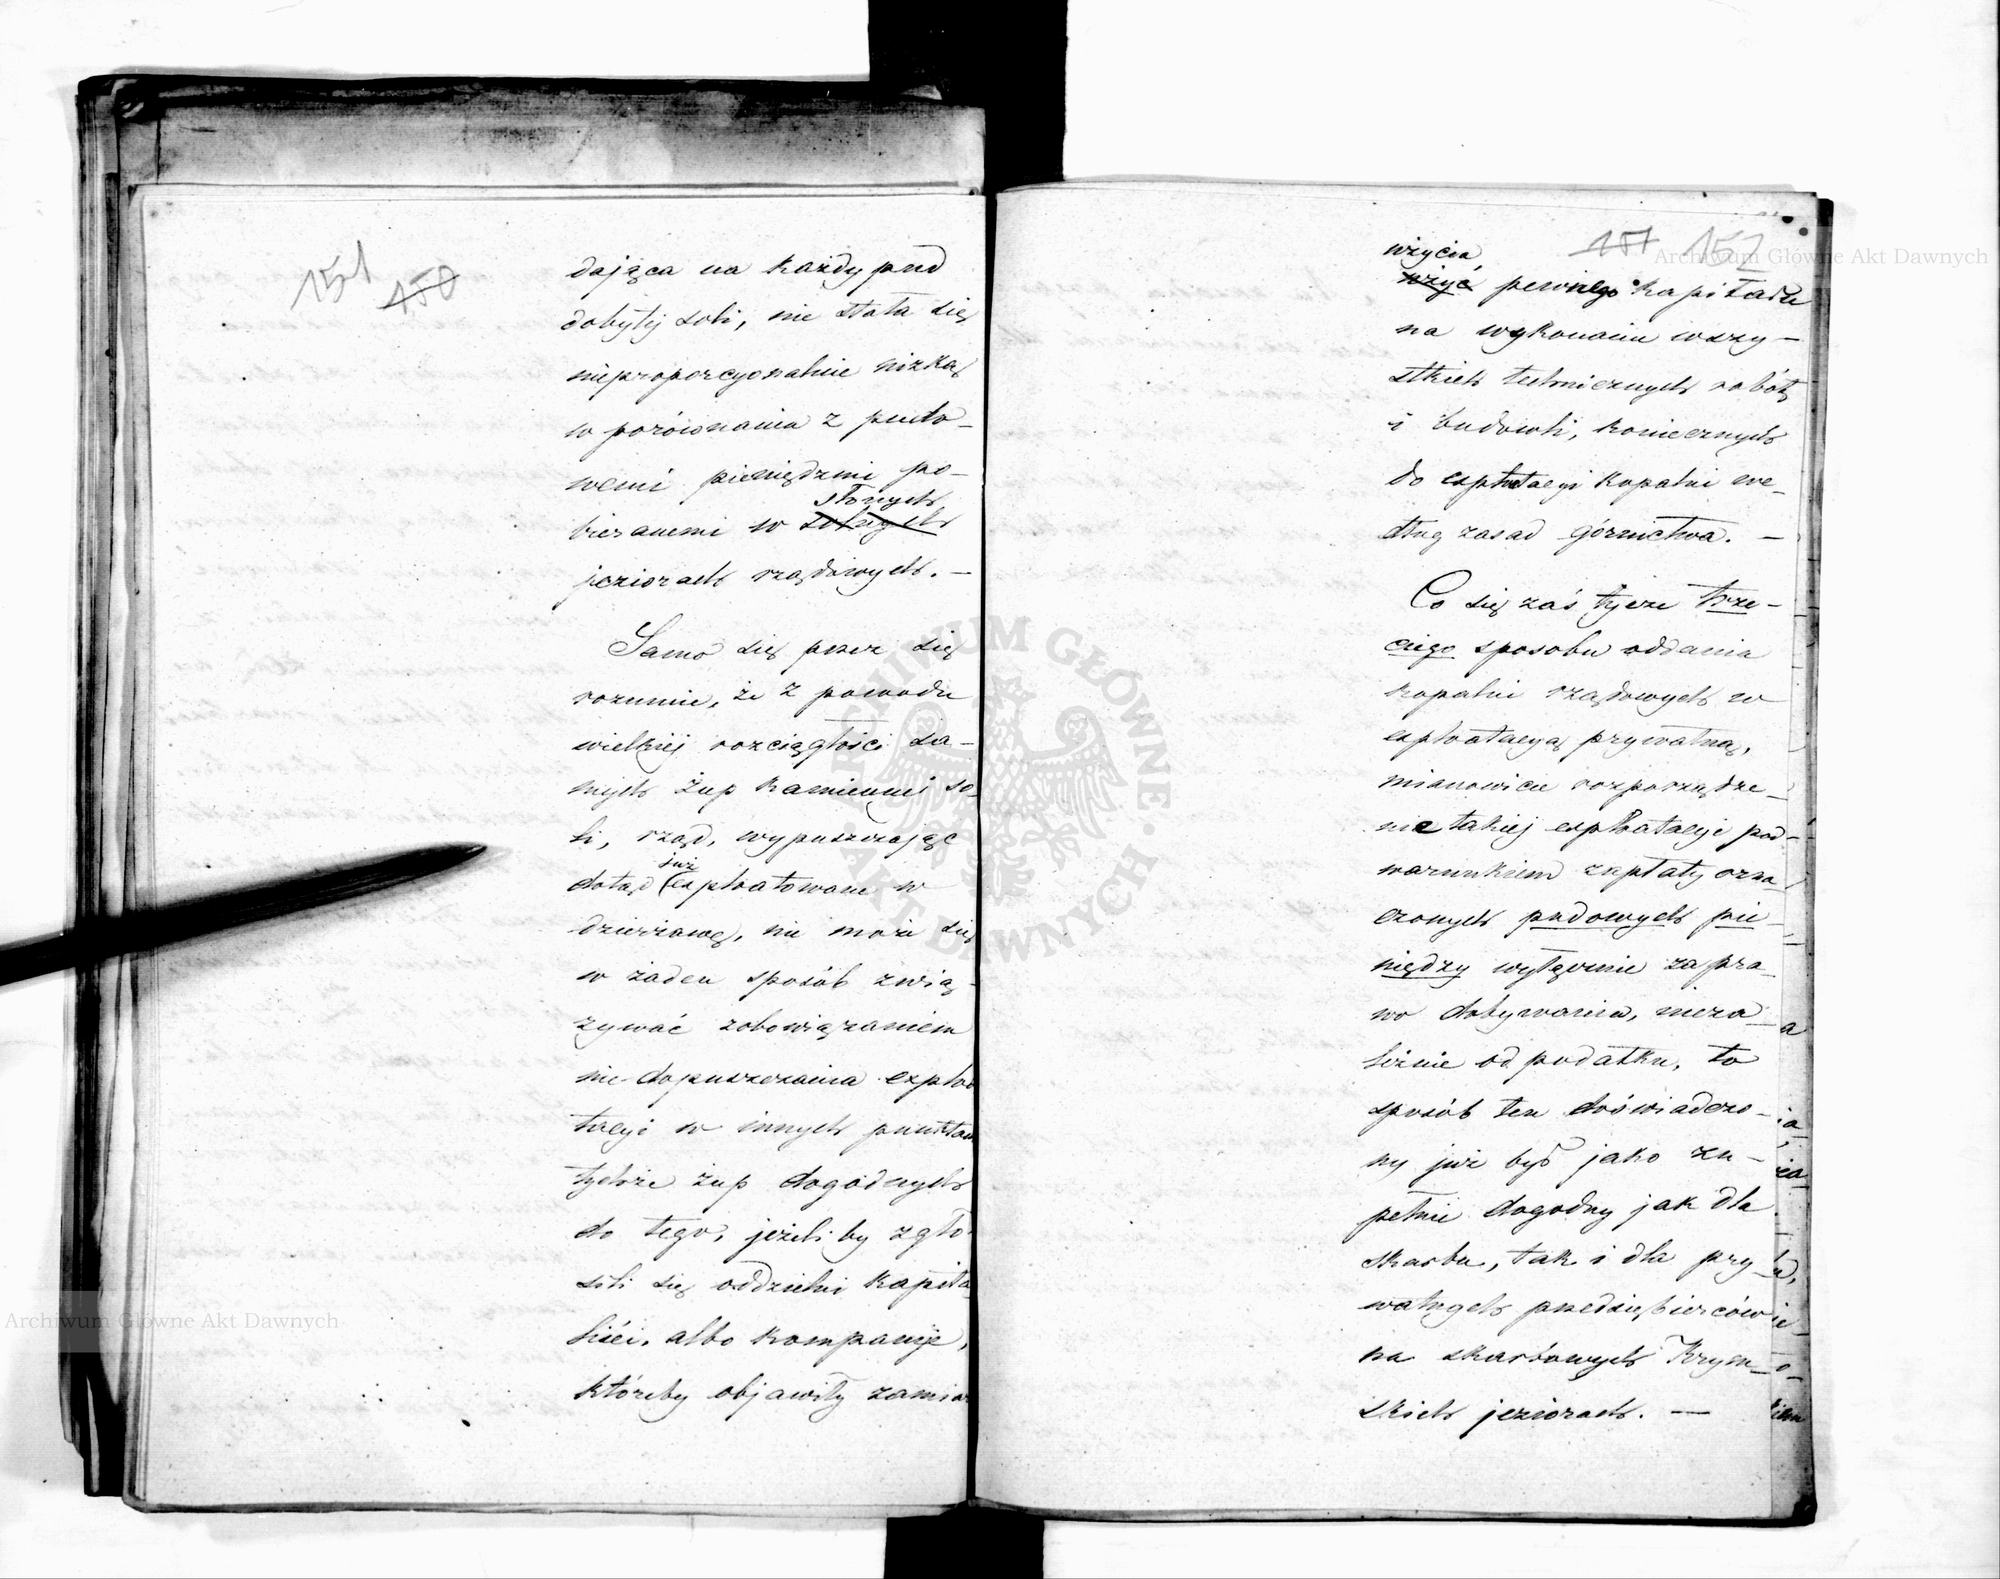 151
150
dająca na każdy pud
dobytej soli, nie stała się
nieproporcyonalnie nizką
w porównaniu z pudo-
wemi pieniędzmi po-
słonych
bieranemi w solnych
jeziorach rządowych. —
Samo się przez się
rozumie, że z powodu
wielkiej rozciągłości sa-
mych żup kamiennej so-
li, rząd, wypuszczając
już
dotąd (exploatowane w
dzierżawę, nie może się
w żaden sposób zwią-
zywać zobowiązaniem
nie dopuszczania exploa
tacyi w innych punktach
tychże żup dogodnych
do tego, jeżeli by zgło-
sili się oddzielni kapita
liści, albo kompanije,
któreby objawiły zamiar
151 152
użycia
użyć pewnego kapitału
na wykonaniu wszy-
stkich technicznych robót
i budowli, koniecznych
do exploatacyi kopalni we-
dług zasad górnictwa. —
Co się zaś tycze trze-
ciego sposobu oddania
kopalni rządowych w
exploatacyą prywatną,
mianowicie rozporządze-
nie takiej exploatacyi pod
warunkiem zapłaty ozna
czonych pudowych pie-
niędzy wyłącznie za pra
wo dobywania, nieza-
leżnie od podatku, to
sposób ten doświadczo-
ny już był jako zu-
pełnie dogodny jak dla
skarbu, tak i dla pry
watnych przedsiębierców
na skarbowych Krym-
skich jeziorach. —
Archiwum Główne Akt Dawnych
Archiwum Główne Akt Dawnych
ARCHIWUM GŁÓWNE
· AKT DAWNYCH ·